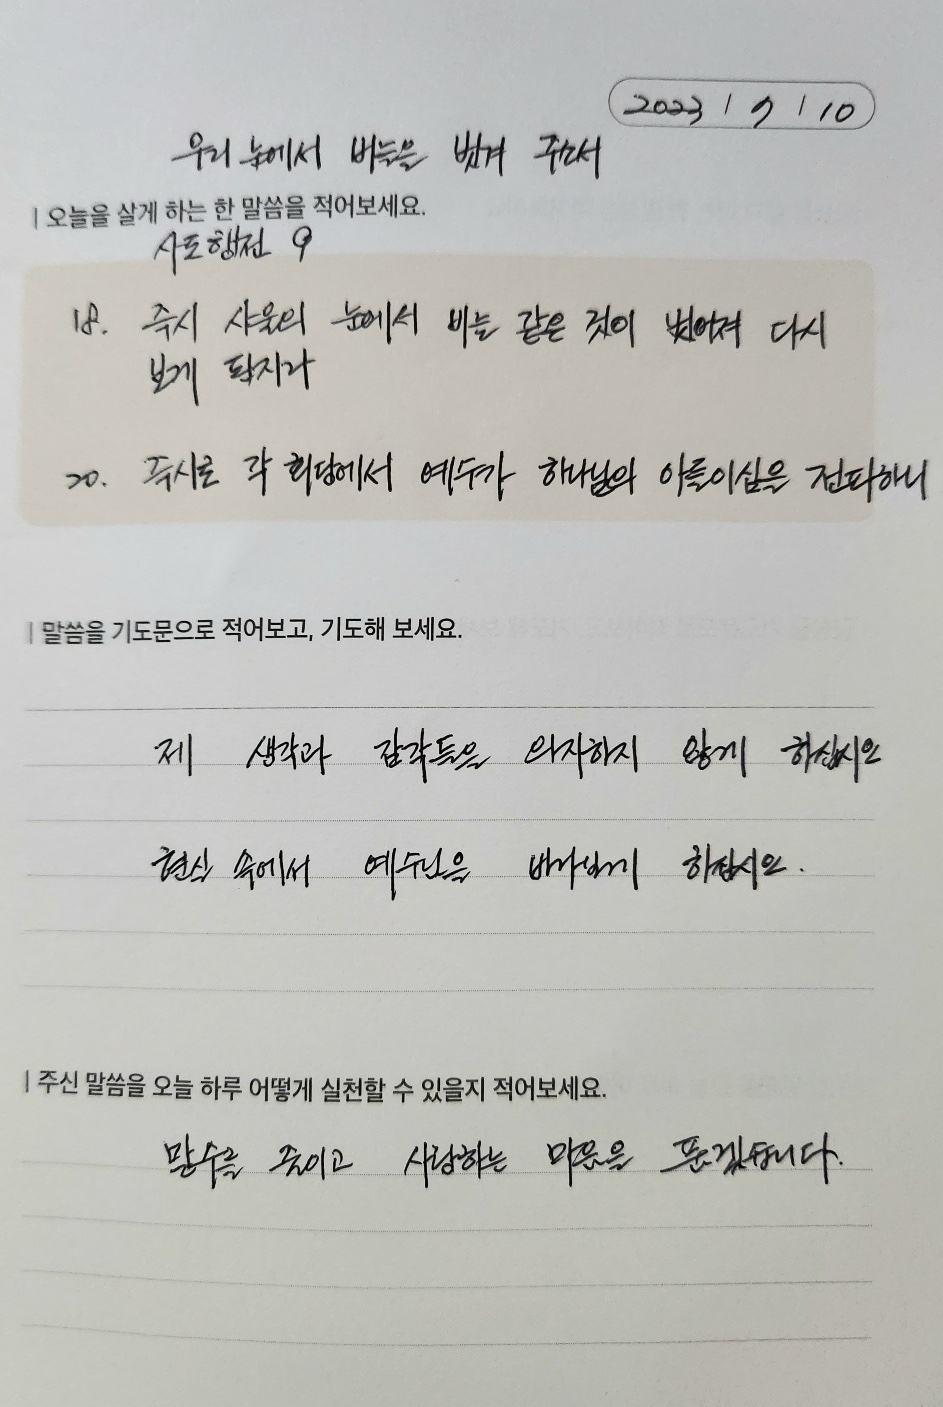 2023 / 7 / 10
우리 눈에서 비늘을 벗겨 주소서
오늘을 살게 하는 한 말씀을 적어보세요.
사도행전 9
18. 즉시 사울의 눈에서 비늘 같은 것이 벗어져 다시
보게 된지라
20. 즉시로 각 회당에서 예수가 하나님의 아들이심을 전파하니
말씀을 기도문으로 적어보고, 기도해 보세요.
제 생각과 감각들을 의지하지 않게 하십시오
현실 속에서 예수님을 바라보게 하십시오.
주신 말씀을 오늘 하루 어떻게 실천할 수 있을지 적어보세요.
말수를 줄이고 사랑하는 마음을 품겠습니다.